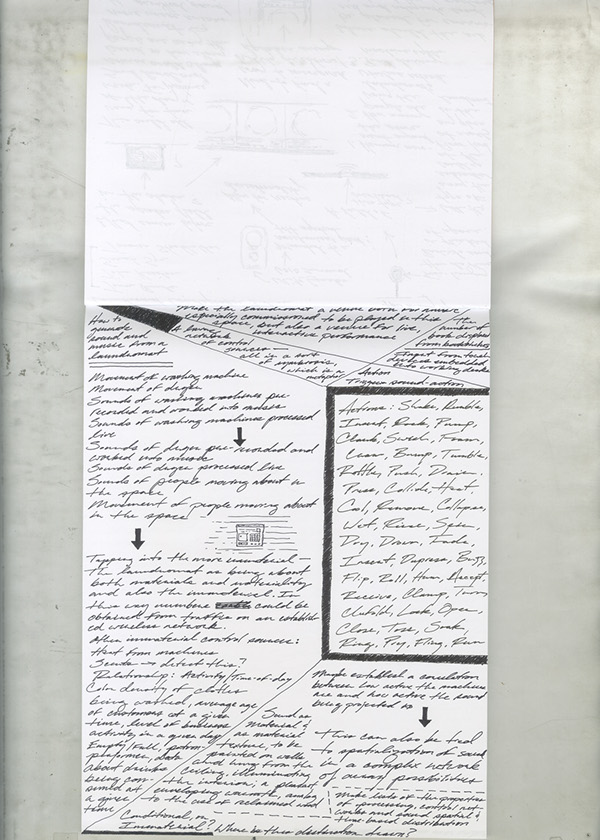 Make the laundromat a venue with our music
especially commissioned to be played in this
space, but also a venue for live,
interactive performance
How to
make
sound and
music from a
laundromat
network
of control
sources —
all is a sort
of
which is a
number of
book
from
Action
Trigger sound action
Movement of washing machine
Movement of dryer
Sounds of washing machines pre-
recorded and worked into music
Sounds of washing machines processed
live
Sounds of dryer pre-recorded and
worked into music
Sounds of dryer processed live
Sounds of people moving about in
the space
Movement of people moving about
in the space
Actions: Shake, Rumble,
Insert, Rock, Pump,
Clank, Swish, Foam,
Clean, Bump, Tumble,
Rattle, Push, Drain,
Press, Collide, Heat
Cool, Remove, Collapse,
Wet, Rinse, Spin,
Dry, Drown, Fade,
Insert, Depress, Buzz,
Flip, Roll, Hum, Accept,
Receive, Clamp, Turn,
Unfold, Lock, Open,
Close, Toss, Soak,
Ring, Pry, Fling, Run
Tapping into the more immaterial —
The laundromat as being about
both materials and materiality
and also the immaterial. In
this way numbers could be
obtained from traffic on an establish-
ed wireless network.
Other immaterial control sources:
Heat from machines
Scents → detect this?
Relationship: Activity/Time-of-day
Color density of clothes
being washed, average age
of customers at a given
time, level of business
activity in a given day
Empty/Full, patron-
performer, data
about drinks
being con-
sumed at
a given
time
Sound as
material &
as material
texture, to be
painted on walls
and hung from the
ceiling, illuminating
the interior, a pleasant
enveloping warmth, analog
to the use of reclaimed wood
Maybe establish a correlation
between how active the machines
are and how active the sound
being projected is
This can also be tied
to spatialization of sound
in a complex network
of aural possibilities
Make lists of the properties
of processing, control, net-
works and sound spatial &
time based distribution
Conditional, or
Immaterial? Where is this distinction drawn?